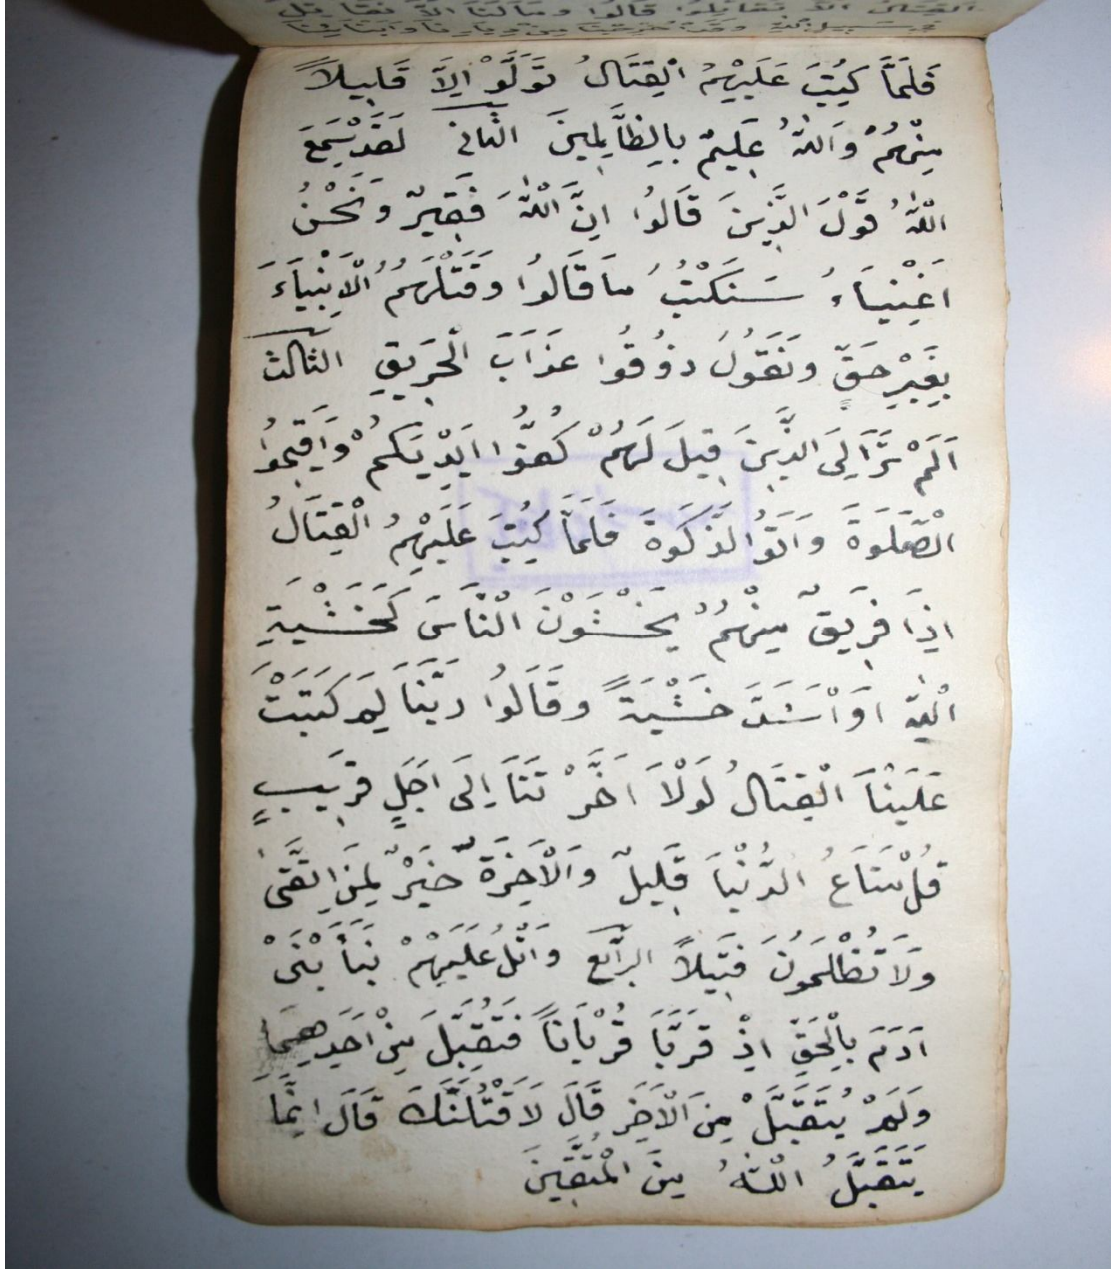 القتال الا تقاتلوا قالوا وما لنا الا نقاتل
في سبيل الله وقد اخرجنا من ديارنا وابنائنا
فَلَمَّا كُتِبَ عَلَيْهِمُ الْقِتَالُ تَوَلَّوْا اِلَّا قَلِيلاً
مِنْهُمْ وَاللهُ عَلِيمٌ بِالظَّالِمِينَ الثاني لَقَدْ سَمِعَ
اللهُ قَوْلَ الَّذِينَ قَالُوا اِنَّ اللهَ فَقِيرٌ وَنَحْنُ
اَغْنِيَاءُ سَنَكْتُبُ مَا قَالُوا وَقَتْلَهُمُ الْاَنْبِيَاءَ
بِغَيْرِ حَقٍّ وَنَقُولُ ذُوقُوا عَذَابَ الْحَرِيقِ الثالث
اَلَمْ تَرَ اِلَى الَّذِينَ قِيلَ لَهُمْ كُفُّوا اَيْدِيَكُمْ وَاَقِيمُوا
الْصَّلَوةَ وَاَتَوُا الْذَّكَوةَ فَلَمَّا كُتِبَ عَلَيْهِمُ الْقِتَالُ
اِذَا فَرِيقٌ مِنْهُمْ يَخْشَوْنَ النَّاسَ كَخَشْيَةِ
اللهِ اَوْ اَشَدَّ خَشْيَةً وَقَالُوا رَبَّنَا لِمَ كَتَبْتَ
عَلَيْنَا الْقِتَالَ لَوْلَا اَخَّرْتَنَا اِلَى اَجَلٍ قَرِيبٍ
قُلْ مَتَاعُ الدُّنْيَا قَلِيلٌ وَالْاَخِرَةُ خَيْرٌ لِمَنِ اتَّقَى
وَلَا تُظْلَمُونَ فَتِيلاً الرابع وَاتْلُ عَلَيْهِمْ نَبَأَ بْنَىْ
اَدَمَ بِالْحَقِّ اِذْ قَرَّبَا قُرْبَاناً فَتُقُبِّلَ مِنْ اَحَدِهِمَا
وَلَمْ يُتَقَبَّلْ مِنَ الْاَخَرِ قَالَ لَاَقْتُلَنَّكَ قَالَ اِنَّمَا
يَتَقَبَّلُ اللهُ مِنَ الْمُتَّقِينَ